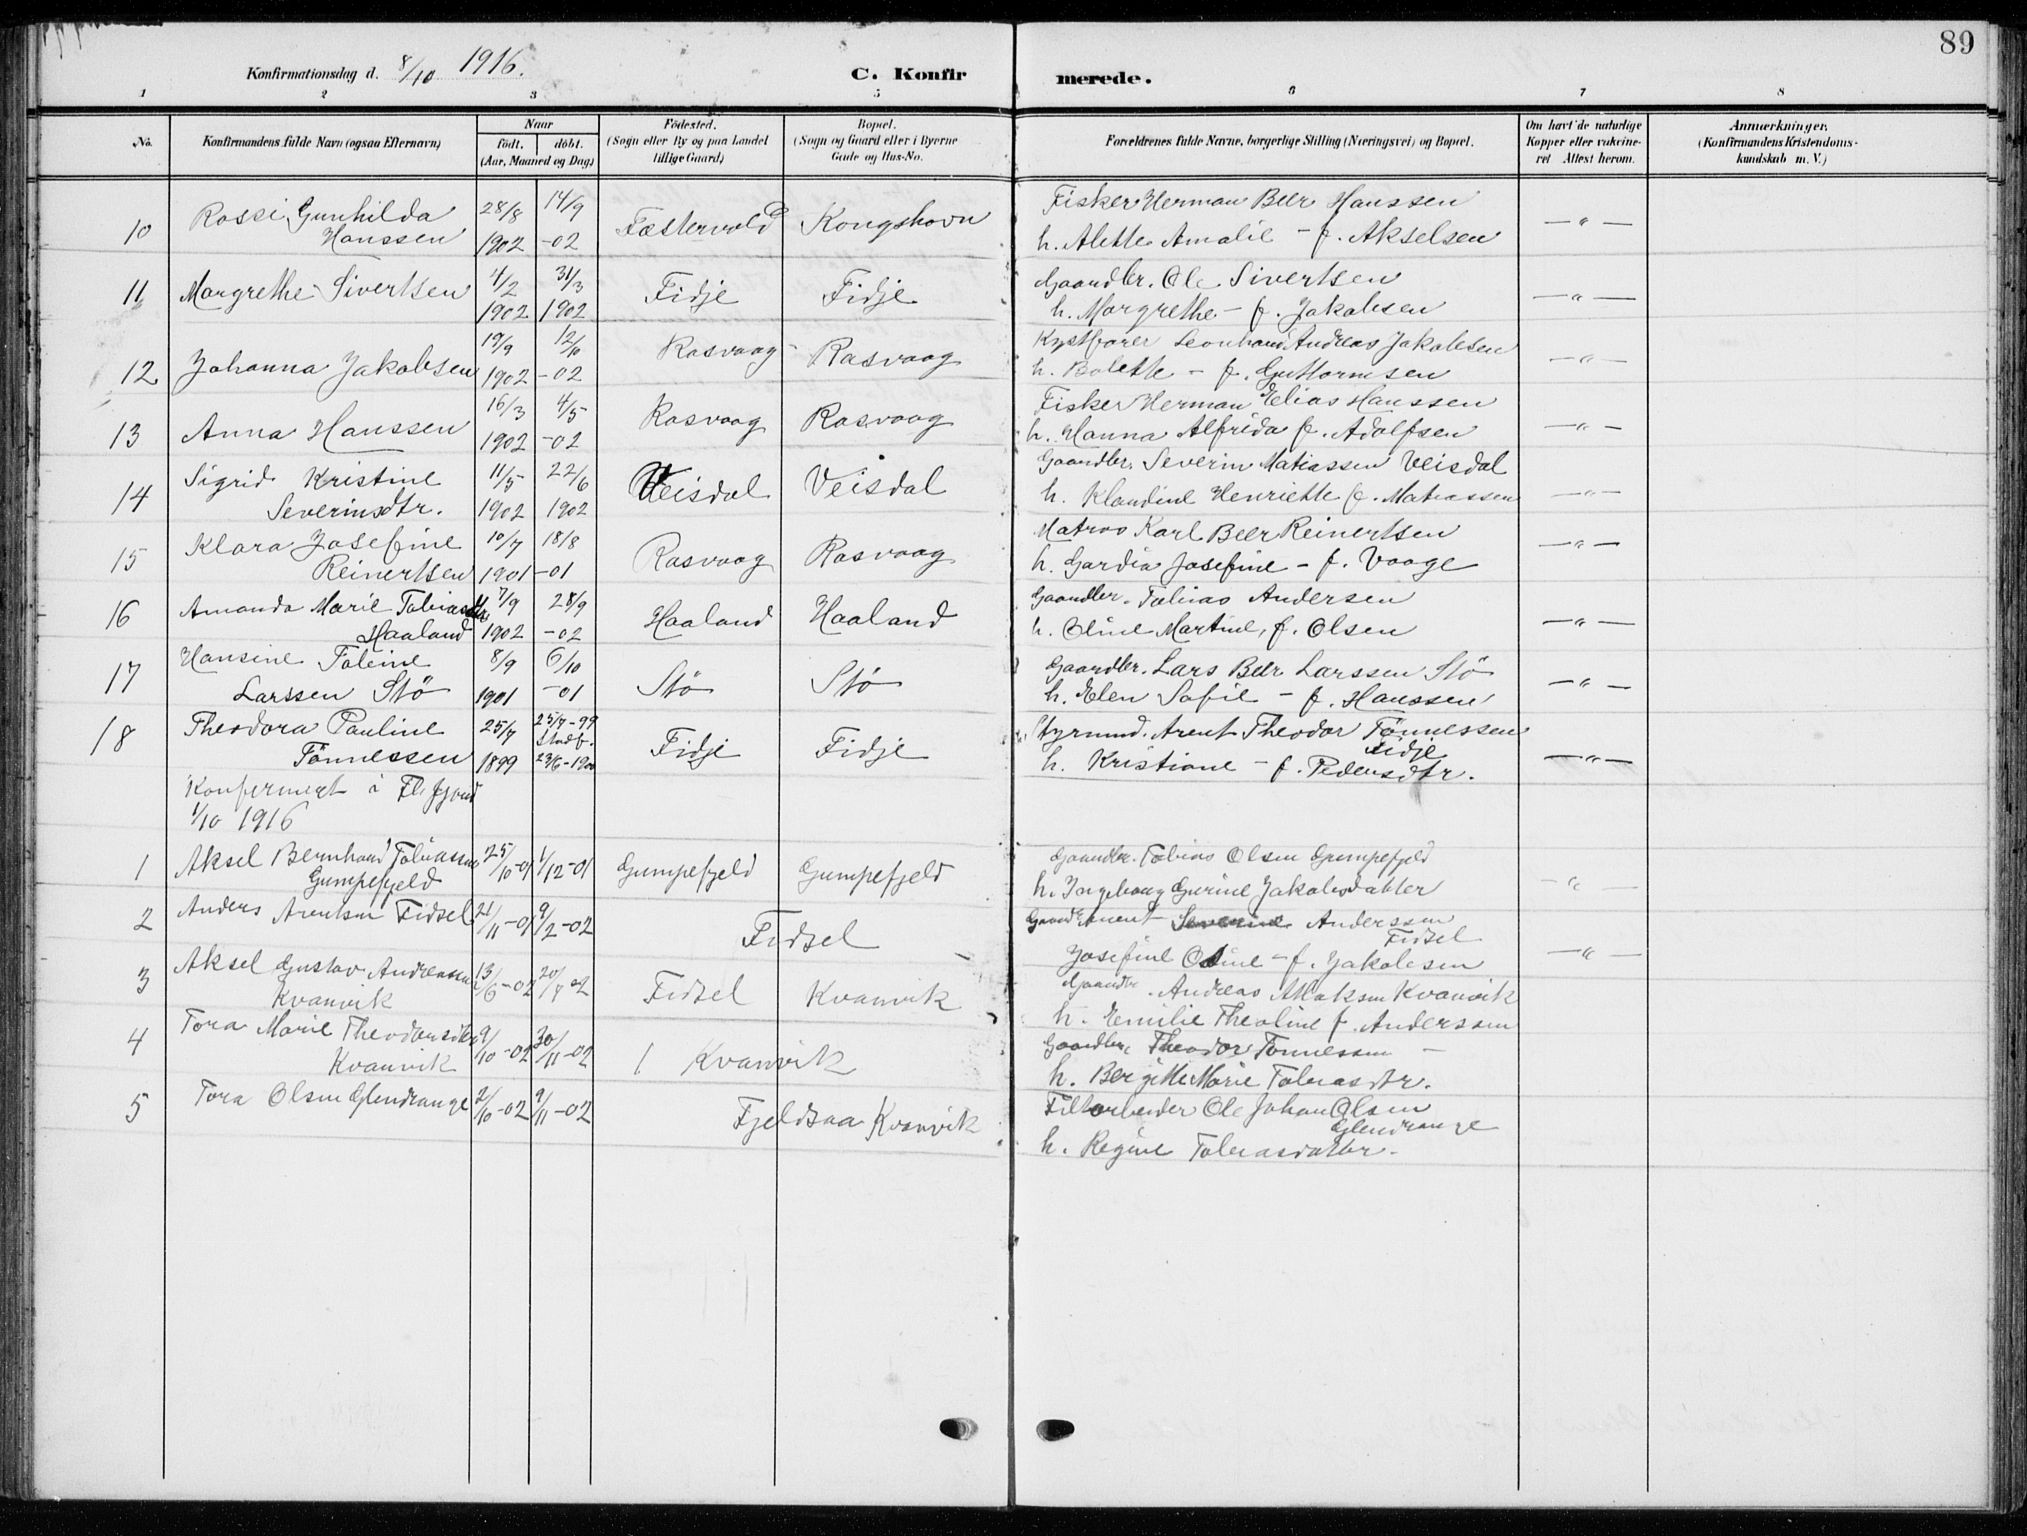 89
Konfirmationsdag d. 8/10 1916. C. Konfirmerede.
1 2 3 5 6 7 8
No. Konfirmandens fulde Navn (ogsaa Efternavn) Naar født. døbt. (Aar, Maaned og Dag) Fødested. (Sogn eller By og paa Landet tillige Gaard) Bopæl. (Sogn og Gaard eller i Byerne Gade og Hus-No. Forældrenes fulde Navne, borgerlige Stilling (Næringsvei) og Bopæl. Om havt de naturlige Kopper eller vakcineret Attest herom. Anmærkninger. (Konfirmandens Kristendomskundskab m. V.)
10 Rossi Gunhilda 28/8 14/9 Fæstervold Kongshovn Fisker Herman Beer Hanssen — " —
Hanssen 1902 -02 h. Alette Amalie - f. Akselsen
11 Margrethe Sivertsen 4/2 31/3 Fidje Fidje Gaardbr. Ole Sivertsen — " —
1902 1902 h. Margrethe - f. Jakobsen
12 Johanna Jakobsen 19/9 12/10 Rasvaag Rasvaag Kystfarer Leonhard Andreas Jakobsen — " —
1902 -02 h. Bolette - f. Guttormsen
13 Anna Hanssen 16/3 4/5 Rasvaag Rasvaag Fisker Herman Elias Hanssen — " —
1902 -02 h. Hanna Alfrida f. Adolfsen
14 Sigrid Kristine 11/5 22/6 Veisdal Veisdal Gaardbr. Severin Matiassen Veisdal — " —
Severinsdtr. 1902 1902 h. Klaudine Henriette f. Matiassen
15 Klara Josefine 10/7 18/8 Rasvaag Rasvaag Matros Karl Beer Reinertsen — " —
Reinertsen 1901 -01 h. Gardia Josefine - f. Vaage
16 Amanda Marie Tobiasdtr 7/9 28/9 Haaland Haaland Gaardbr. Tobias Andersen — " —
Haaland 1902 -02 h. Oline Martine, f. Olsen
17 Hansine Toline 8/9 6/10 Stö Stö Gaardbr. Lars Beer Larssen Stö — " —
Larssen Stö 1901 -01 h. Elen Sofie - f. Hanssen
18 Theodora Pauline 25/7 25/7-99 Fidje Fidje Styrmd. Arent Theodor Tönnessen
Stadf. Fidje
Tönnessen 1899 23/6-1900 h. Kristiane - f. Pedersdtr. — " —
Konfermert i
1/10 1916
1 Aksel Bernhard Tobiassen 25/10-01 1/12-01 Gumpefjeld Gumpefjeld Gaardbr. Tobias Olsen Gumpefjeld
Gumpefjeld h. Ingeborg Gurine Jakobsdatter - " —
2 Anders Arentsen Fidsel 21/11-01 9/2-02 Fidsel Arent Severine Anderssen
Fidsel
Josefine Oline - f. Jakobsen — " —
3 Aksel Gustav Andreassen 13/6-02 20/7 02 Fidsel Kvanvik Gaardbr. Andreas Kvanvik
Kvanvik h. Emilie Theoline f. Anderssen
4 Tora Marie Theodorsdtr 9/10-02 30/11-02 Kvanvik Gaardbr. Theodor Tönnessen -
Kvanvik h. Bergitte Marie Tobiasdtr.
5 Tora Olsen Glendrange 2/10-02 9/11-02 Fjeldsaa Kvanvik Ole Johan Olsen
Glendrange
h. Regine Tobiasdatter.